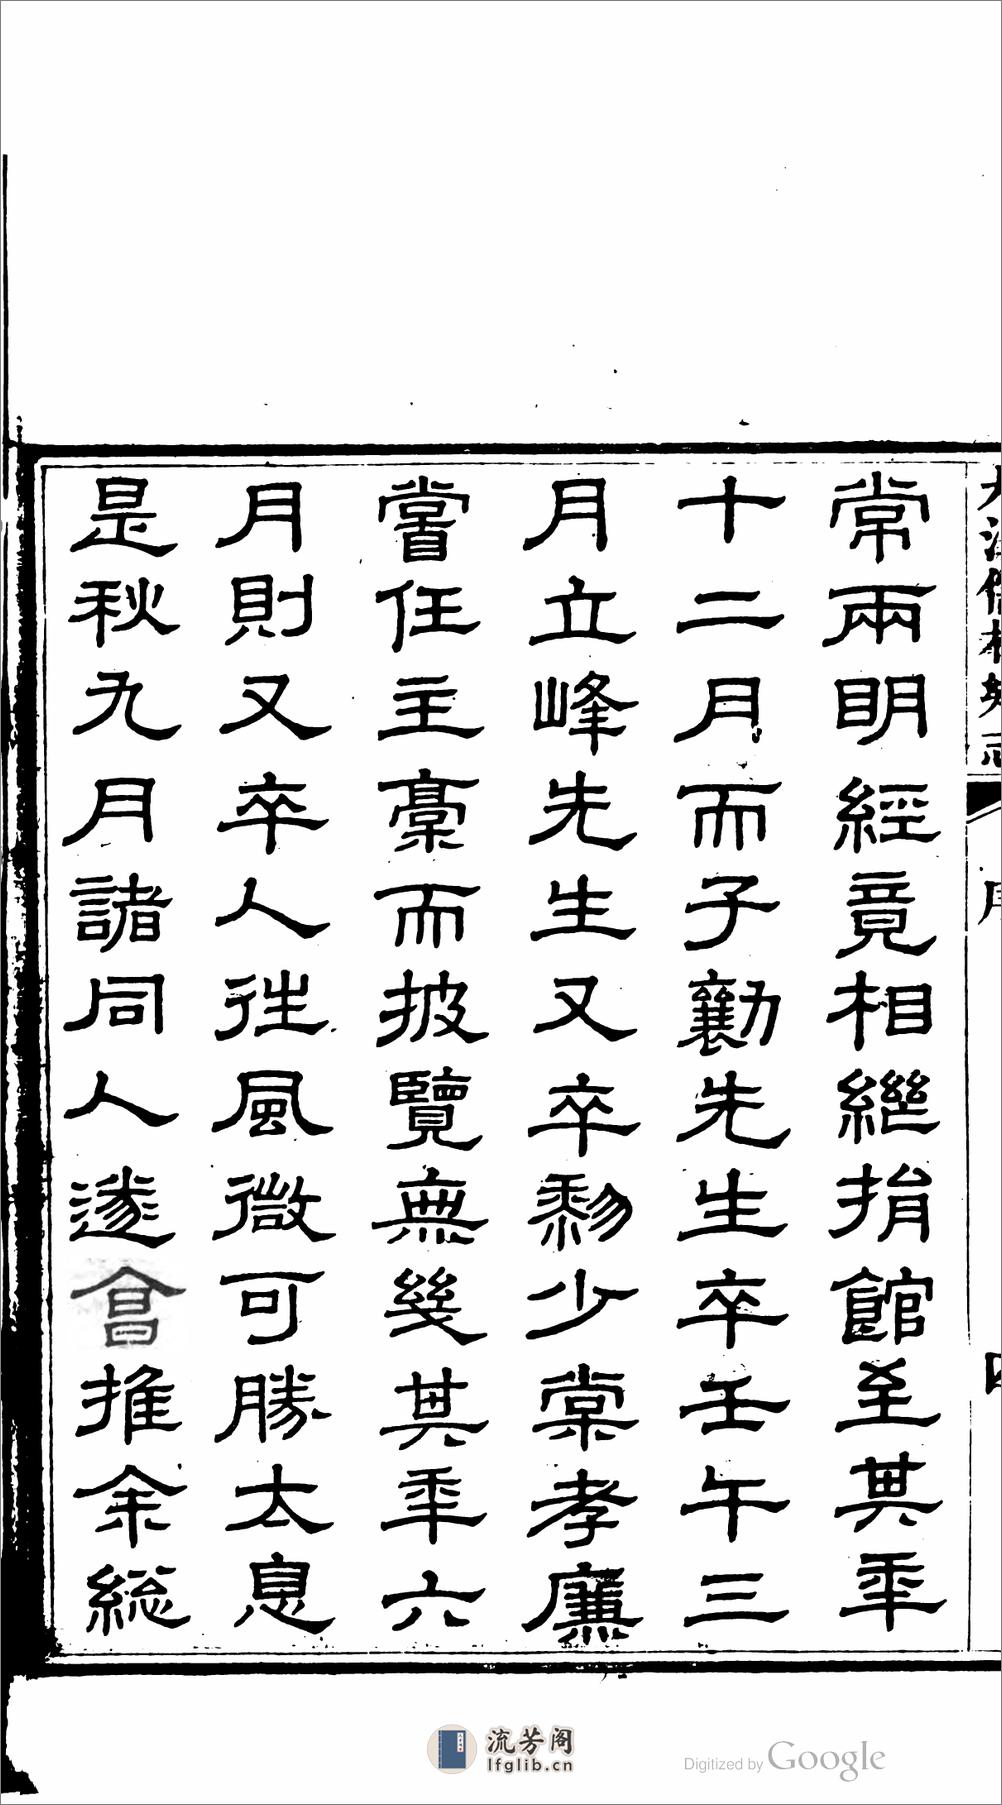 常兩明經竟相繼捐館至其年
十二月而子勷先生卒壬午三
月立峰先生又卒黎少棠孝廉
嘗任主稾而披覽無幾其年六
月則又卒人徃風微可勝太息
是秋九月諸同人遂會推余総
序
四
流芳阁
lfglib.cn
Digitized by Google